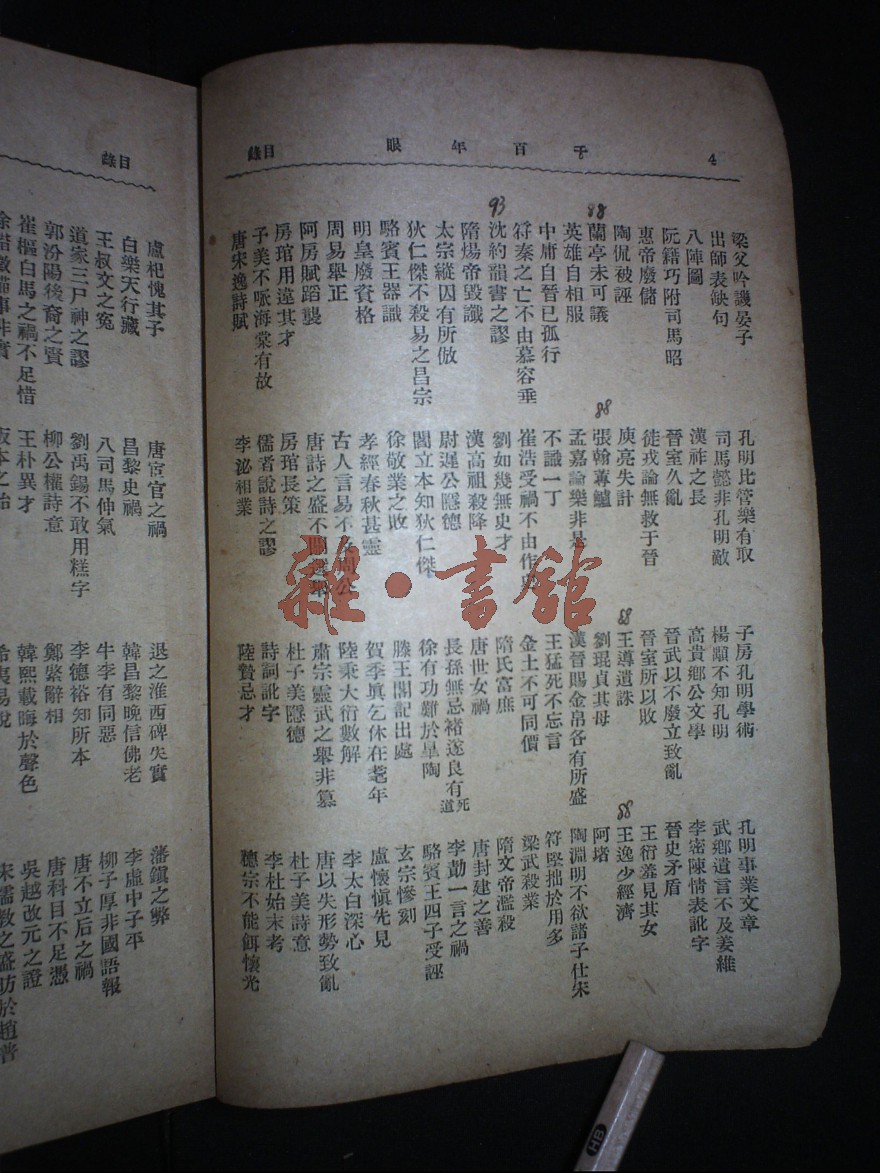 4
千百年眼
目錄
梁父吟譏晏子
孔明比管樂有取
子房孔明學術
孔明事業文章
出師表缺句
司馬懿非孔明敵
楊顒不知孔明
武鄉遺言不及姜維
八陣圖
漢祚之長
高貴鄉公文學
李密陳情表訛字
阮籍巧附司馬昭
晉室久亂
晉武以不廢立致亂
晉史矛盾
惠帝廢儲
徙戎論無救于晉
晉室所以敗
王衍羞見其女
陶侃被誣
庾亮失計
88
王導遺誅
88
王逸少經濟
88
蘭亭未可議
88
張翰蓴鱸
劉琨貞其母
阿堵
英雄自相服
孟嘉論樂非是
漢晉賜金帛各有所盛
陶淵明不欲諸子仕宋
中庸自晉已孤行
不識一丁
王猛死不忘言
苻堅拙於用多
苻秦之亡不由慕容垂
崔浩受禍不由作史
金土不可同價
梁武殺業
93
沈約韻書之謬
劉如幾無史才
隋氏富庶
隋文帝濫殺
隋煬帝毀讖
漢高祖殺降
唐世女禍
唐封建之善
太宗縱囚有所倣
尉遲公隱德
長孫無忌褚遂良有死道
李勣一言之禍
狄仁傑不殺易之昌宗
閻立本知狄仁傑
徐有功難於皐陶
駱賓王四子受誣
駱賓王器識
徐敬業之敗
滕王閣記出處
玄宗慘刻
明皇廢資格
孝經春秋甚靈
賀季真乞休在耄年
盧懷愼先見
周易舉正
古人言易不周公
陸秉大衍數解
李太白深心
阿房賦蹈襲
唐詩之盛不關選舉
肅宗靈武之舉非篡
唐以失形勢致亂
房琯用違其才
房琯長策
杜子美隱德
杜子美詩意
子美不咏海棠有故
儒者說詩之謬
詩詞訛字
李杜始末考
唐宋逸詩賦
李泌相業
陸贄忌才
德宗不能餌懷光
雜·書館
目錄
盧杞愧其子
唐宦官之禍
退之淮西碑失實
藩鎭之弊
白樂天行藏
昌黎史禍
韓昌黎晚信佛老
李虛中子平
王叔文之寃
八司馬伸氣
牛李有同惡
柳子厚非國語報
道家三尸神之謬
劉禹錫不敢用糕字
李德裕知所本
唐不立后之禍
郭汾陽後裔之賢
柳公權詩意
鄭綮辭相
唐科目不足憑
崔樞白馬之禍不足惜
王朴異才
韓熙載晦於聲色
吳越改元之證
版本之始
希夷易說
宋儒敎之盛昉於趙普
HB